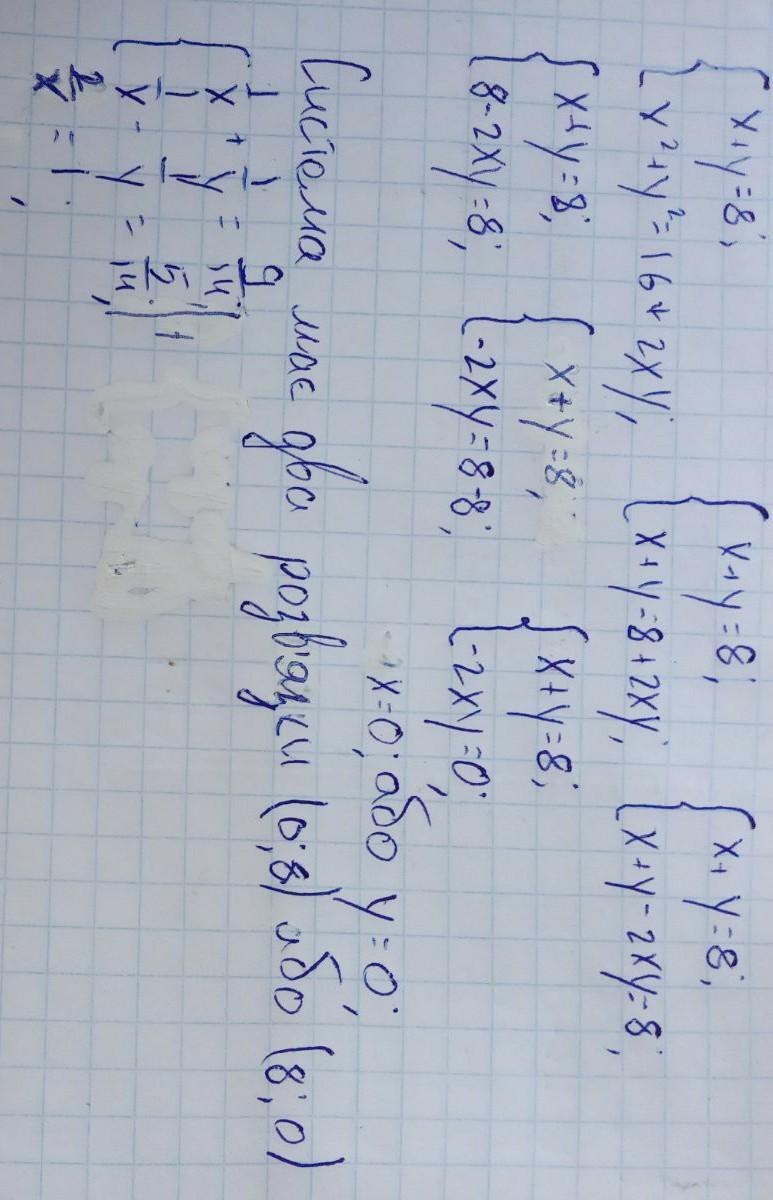 { x+y=8; { x+y=8; { x+y=8;
{ x²+y²=16+2xy; { x+y=8+2xy; { x+y-2xy=8;
{ x+y=8; { x+y=8; { x+y=8;
{ 8-2xy=8; { -2xy=8-8; { -2xy=0;
x=0; або y=0;
Система має два розв'язки (0;8) або (8;0)
{ 1/x + 1/y = 9/14; | +
{ 1/x - 1/y = 5/14; |
2/x = 1;